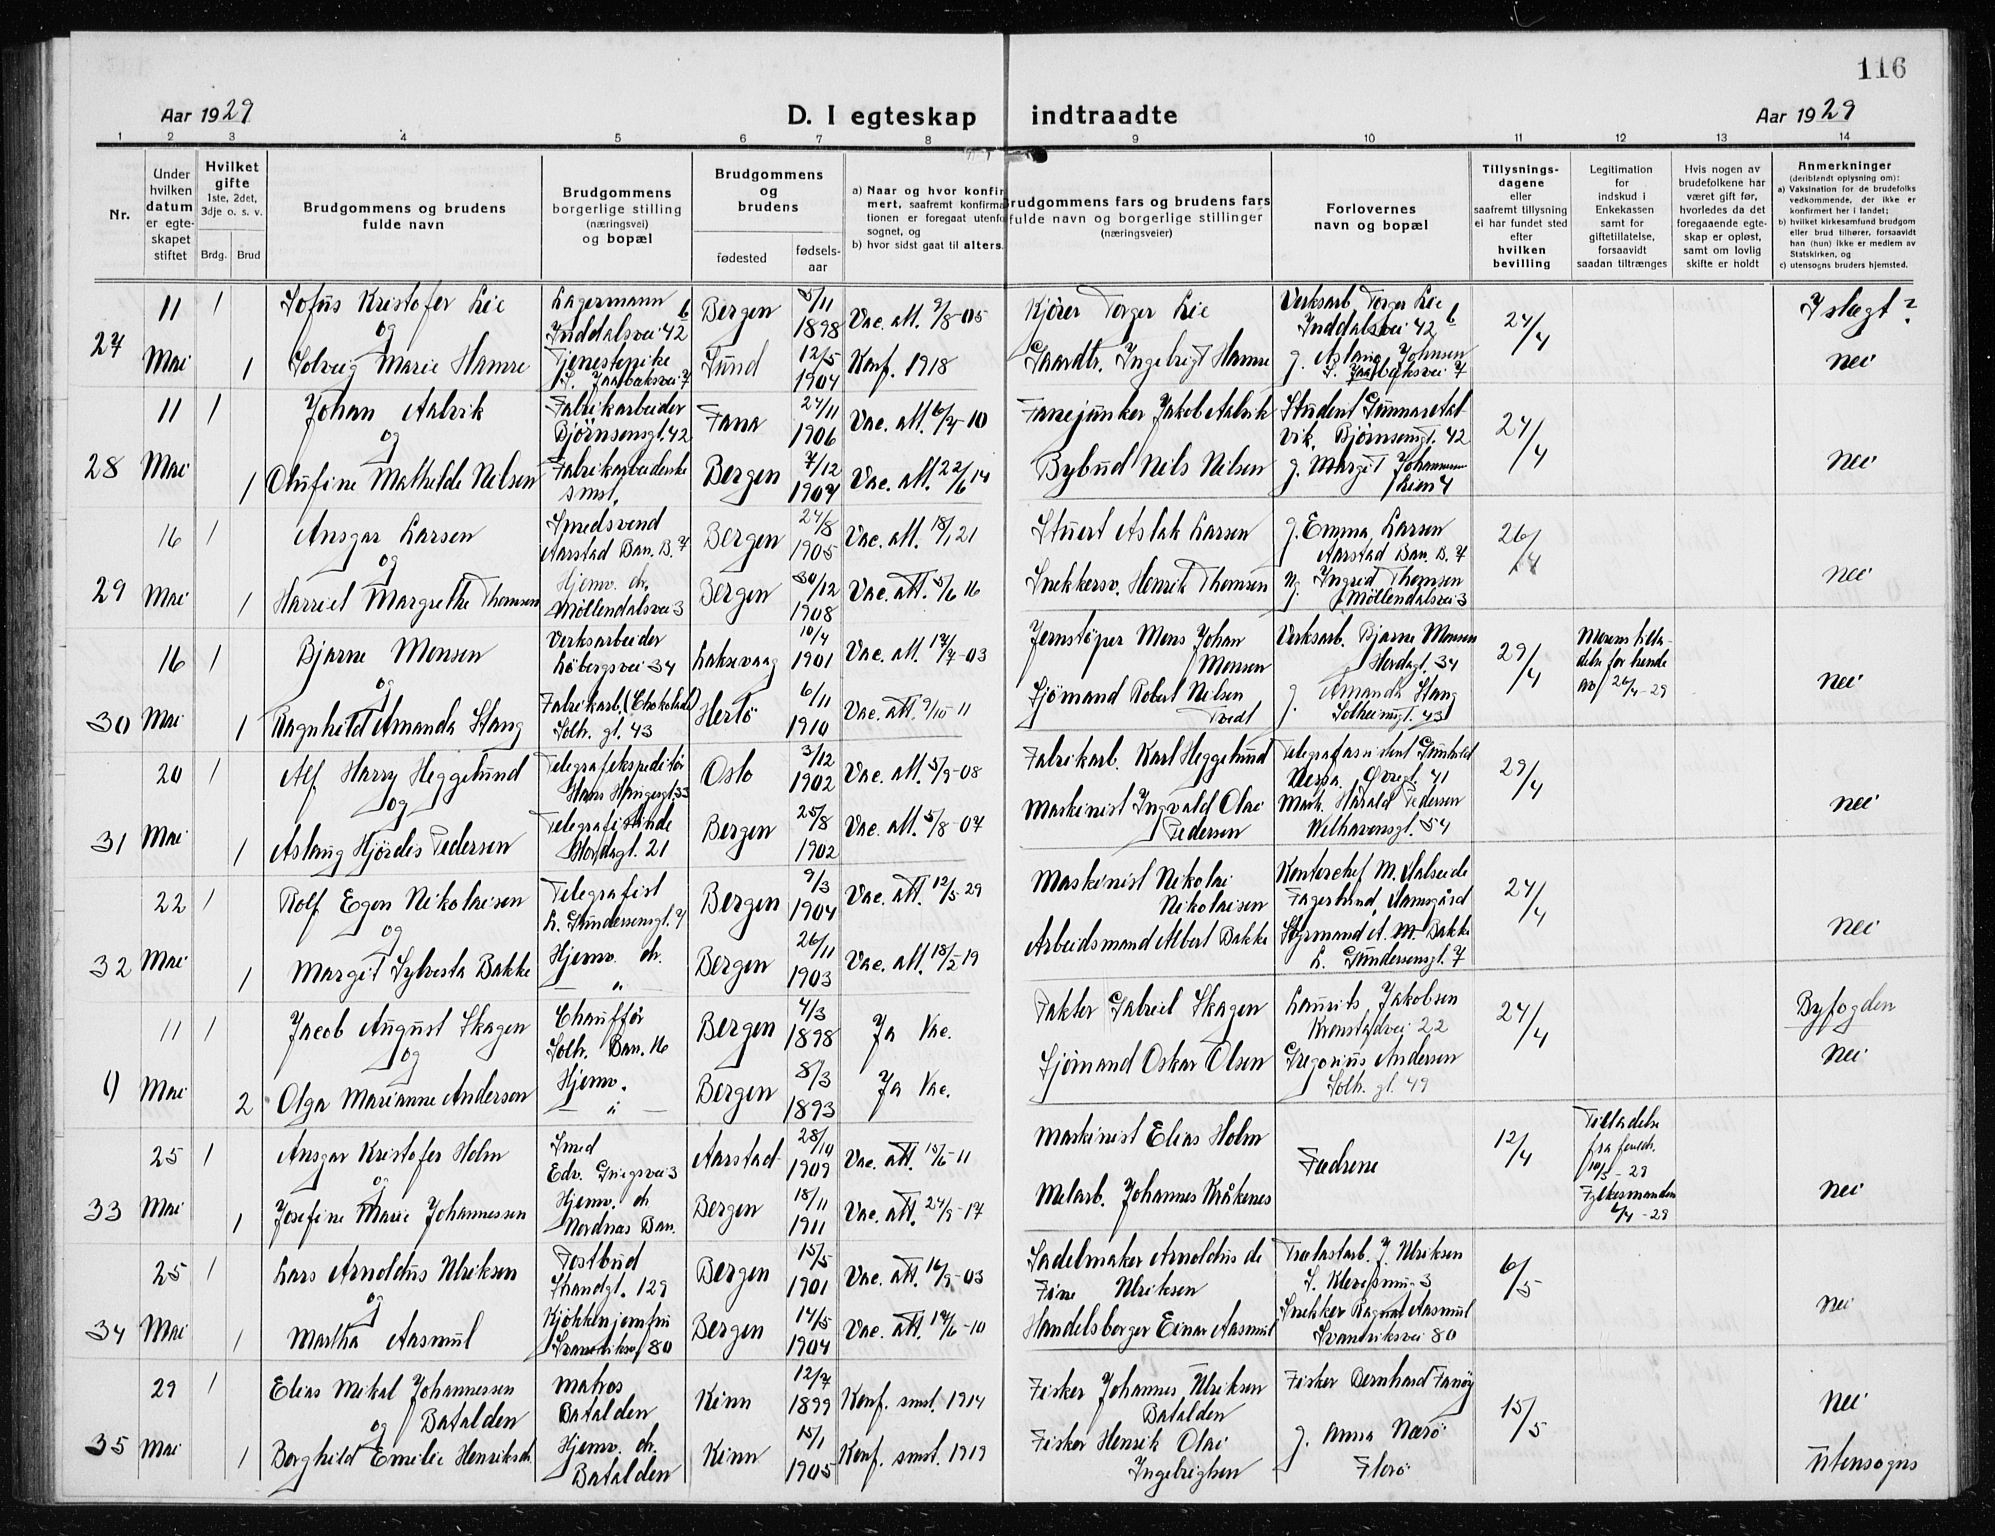 116
Aar 1929
D. I egteskap indtraadte
Aar 1929
1 2 3 4 5 6 7 8 9 10 11 12 13 14
Nr.
Under hvilken datum er egteskapet stiftet
Hvilket gifte 1ste, 2det, 3dje o. s. v.
Brdg. Brud
Brudgommens og brudens fulde navn
Brudgommens borgerlige stilling (næringsvei) og bopæl
Brudgommens og brudens
fødested
fødsels-aar
a) Naar og hvor konfirmert, saafremt konfirmationen er foregaat utenfor sognet, og
b) hvor sidst gaat til alters.
Brudgommens fars og brudens fars fulde navn og borgerlige stillinger (næringsveier)
Forlovernes navn og bopæl
Tillysnings-dagene eller saafremt tillysning ei har fundet sted efter hvilken bevilling
Legitimation for indskud i Enkekassen samt for giftetillatelse, forsaavidt saadan tiltrænges
Hvis nogen av brudefolkene har været gift før, hvorledes da det foregaaende egteskap er opløst, samt om lovlig skifte er holdt
Anmerkninger (deriblandt oplysning om):
a) Vaksination for de brudefolks vedkommende, der ikke er konfirmert her i landet;
b) hvilket kirkesamfund brudgom eller brud tilhører, forsaavidt han (hun) ikke er medlem av Statskirken, og
c) utensogns bruders hjemsted.
27
11 1 Sofus Kristofer Lie Lagermann Inddalsvei 42 b Bergen 5/11 1898 Vac. att. 9/8-05 Kjører Torger Lie Verksarb. Torger Lie Inddalsvei 42 b 24/4 I slegt?
og
Mai 1 Solveig Marie Hamre Tjenestepike Lund 12/5 1904 Konf. 1918 Gaardbr. Ingebrigt Hamre g. Aslaug Johnsen nei
28
11 1 Johan Aalvik Fabrikarbeider Bjørnsensgt. 42 Fana 27/11 1906 Vac. att. 6/7-10 Fanejunker Jakob Aalvik Student Gunnar Aalvik, Bjørnsensgt. 42 24/4
og
Mai 1 Olufine Mathilde Nilsen Fabrikarbeiderske smst. Bergen 7/12 1907 Vac. att. 22/6 14 Bybud Nils Nilsen g. Margit Johannessen nei
29
16 1 Ansgar Larsen Smedsvend Aarstad Ban. B. 7 Bergen 27/8 1905 Vac. att. 18/1 21 Stuert Aslak Larsen g. Emma Larsen Aarstad Ban. B. 7 26/4
og
Mai 1 Harriet Margrethe Thomsen Hjemv. dr. Møllendalsvei 3 Bergen 30/12 1908 Vac. att. 5/6 16 Snekkersv. Henrik Thomsen Ug. Ingrid Thomsen Møllendalsvei 3 nei
30
16 1 Bjarne Monsen Verksarbeider Løbergsvei 34 Laksevaag 10/4 1901 Vac. att. 12/7-03 Jernstøper Mons Johan Monsen Verksarb. Bjarne Monsen Hordagt. 34 29/4 Morens tilladelse for hende av 26/4-29
og
Mai 1 Ragnhild Amanda Stang Fabrikarb. (Chokolade) Solh. gt. 43 Hertø 6/11 1910 Vac. att. 9/10-11 Sjømand Robert Nilsen Tvedt g. Amanda Stang Solheimsgt. 43 nei
31
20 1 Alf Harry Heggelund Telegrafekspeditør Hans Haugesgt. 33 Oslo 3/12 1902 Vac. att. 5/9-08 Fabrikarb. Karl Heggelund Telegrafassistent Gunhild Øvregt. 41 29/4
og
Mai 1 Aslaug Hjørdis Pedersen Telegrafistinde Hordagt. 21 Bergen 25/8 1902 Vac. att. 5/8-07 Maskinist Ingvald Olai Pedersen Mask. Harald Pedersen Welhavensgt. 54 nei
32
22 1 Rolf Egon Nikolaisen Telegrafist L. Gundersensgt. 7 Bergen 9/3 1904 Vac. att. 12/5 29 Maskinist Nikolai Nikolaisen Kontorchef M. Aalseide Fagerlund, Slamsgård 24/4
og
Mai 1 Margit Sylvesta Bakke Hjemv. dr. — „ — Bergen 26/11 1903 Vac. att. 18/2 19 Arbeidsmand Albert Bakke Styrmand A. M. Bakke L. Gundersensgt. 7 nei
9
11 1 Jacob August Skagen Chauffør Solh. Ban. 16 Bergen 4/3 1898 Ja Vac. Pakter Gabriel Skagen Laurits Jakobsen Kronstadvei 22 24/4 Byfogden
og
Mai 2 Olga Marianne Andersen Hjemv. — „ — Bergen 8/3 1893 Ja Vac. Sjømand Oskar Olsen Gregorius Andersen Solh. gt. 49 nei
33
25 1 Ansgar Kristofer Holm Smed Edv. Griegsvei 3 Aarstad 28/10 1909 Vac. att. 15/6-11 Maskinist Elias Holm Fædrene 12/4 Tilladelse fra foreldr. 10/5-29 Fylkesmanden 6/4-29
og
Mai 1 Josefine Marie Johannessen Hjemv. dr. Nordnæs Ban. Bergen 18/11 1911 Vac. att. 24/9-17 Melarb. Johannes Kråkenes nei
34
25 1 Lars Arnoldus Ulriksen Postbud Strandgt. 129 Bergen 15/5 1901 Vac. att. 16/9-03 Sadelmaker Arnoldus de Fine Ulriksen Trælastarb. J. Ulriksen 6/5
og
Mai 1 Martha Aasmul Kjøkkenjomfru Bergen 14/5 1904 Vac. att. 14/6-10 Handelsborger Einar Aasmul Snekker Ragnv. Aasmul 80 nei
35
29 1 Elias Mikal Johannessen Batalden Matros Batalden Kinn 12/7 1899 Konf. smst. 1914 Fisker Johannes Ulriksen Batalden Fisker Bernhard Fanøy 15/5 nei
og
Mai 1 Borghild Emilie Henriksdr. Hjemv. dr. Batalden Kinn 15/1 1905 Konf. smst. 1919 Fisker Henrik Olai Ingebrigtsen g. Anna Nærø Florø Utensogns